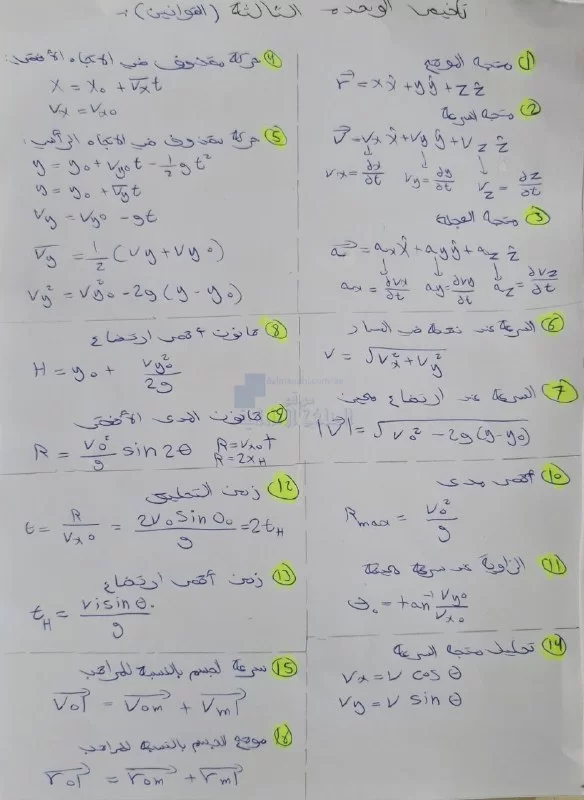 تلخيص الوحدة الثالثة (القوانين) :-
① متجه الموقع
r⃗ = x x̂ + y ŷ + z ẑ
② متجه السرعة
v⃗ = vx x̂ + vy ŷ + vz ẑ
vx = ∂x/∂t vy = ∂y/∂t vz = ∂z/∂t
③ متجه العجلة
a⃗ = ax x̂ + ay ŷ + az ẑ
ax = ∂vx/∂t ay = ∂vy/∂t az = ∂vz/∂t
④ حركة مقذوف في الاتجاه الأفقي:
x = x₀ + v̅x t
vx = vx₀
⑤ حركة مقذوف في الاتجاه الرأسي:
y = y₀ + vy₀ t - ½ g t²
y = y₀ + v̅y t
vy = vy₀ - gt
v̅y = ½ (vy + vy₀)
vy² = vy₀² - 2g (y - y₀)
⑥ السرعة عند نقطة في المسار
v = √(vx² + vy²)
⑦ السرعة عند ارتفاع معين
|v⃗| = √(v₀² - 2g(y - y₀))
⑧ قانون أقصى ارتفاع
H = y₀ + vy₀²/2g
⑨ قانون المدى الأفقي
R = v₀²/g sin 2θ R = vx₀ t
R = 2xH
⑩ أقصى مدى
Rmax = v₀²/g
⑪ الزاوية عند سرعة
θ₀ = tan⁻¹ vy₀/vx₀
⑫ زمن التحليق
t = R/vx₀ = 2v₀ sin θ₀/g = 2tH
⑬ زمن أقصى ارتفاع
tH = vi sin θ₀/g
⑭ تحليل متجه السرعة
vx = v cos θ
vy = v sin θ
⑮ سرعة لجسم بالنسبة للمراقب
v⃗ol = v⃗om + v⃗ml
⑯ موقع الجسم بالنسبة للمراقب
r⃗ol = r⃗om + r⃗ml
almanahj.com/ae
موقع
المناهج الإماراتية